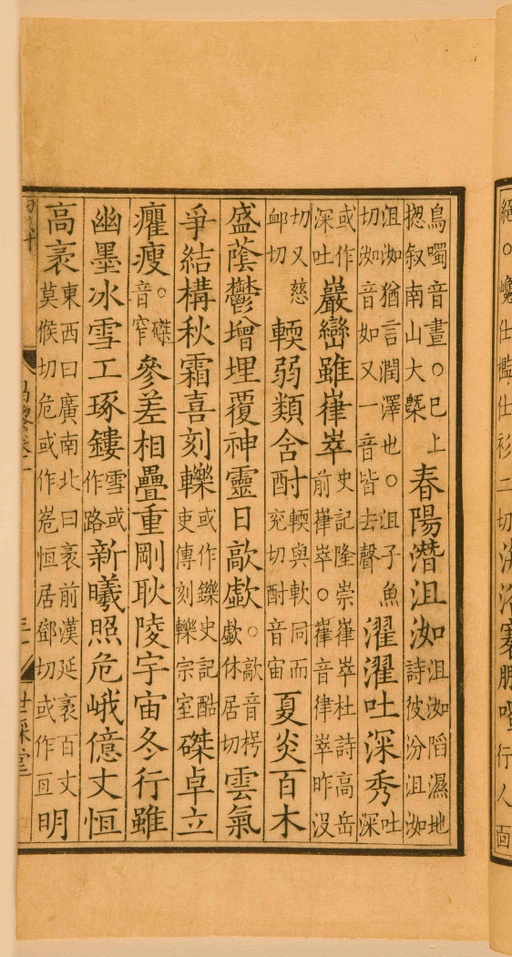 鳥噣音晝○巳上揔叙南山大槩春陽潛沮洳沮洳陷濕地詩彼汾沮洳
沮洳猶言潤澤也○沮子魚切洳音如又一音皆去聲濯濯吐深秀吐深
或作深吐巖巒雖嵂崒史記隆崇嵂崒杜詩高岳前嵂崒○嵂音律崒昨沒
切又慈䘏切輭弱類含酎輭與軟同而兖切酎音宙夏炎百木
盛蔭鬱增埋覆神靈日歊歔○歊音枵歔休居切雲氣
爭結構秋霜喜刻轢或作鑠史記酷吏傳刻轢宗室磔卓立
癯瘦○磔音窄參差相疊重剛耿陵宇宙冬行雖
幽墨冰雪工琢鏤雪或作路新曦照危峨億丈恒
高袤東西曰廣南北曰袤前漢延袤百丈莫候切危或作峞恒居鄧切或作亘明
世綵堂